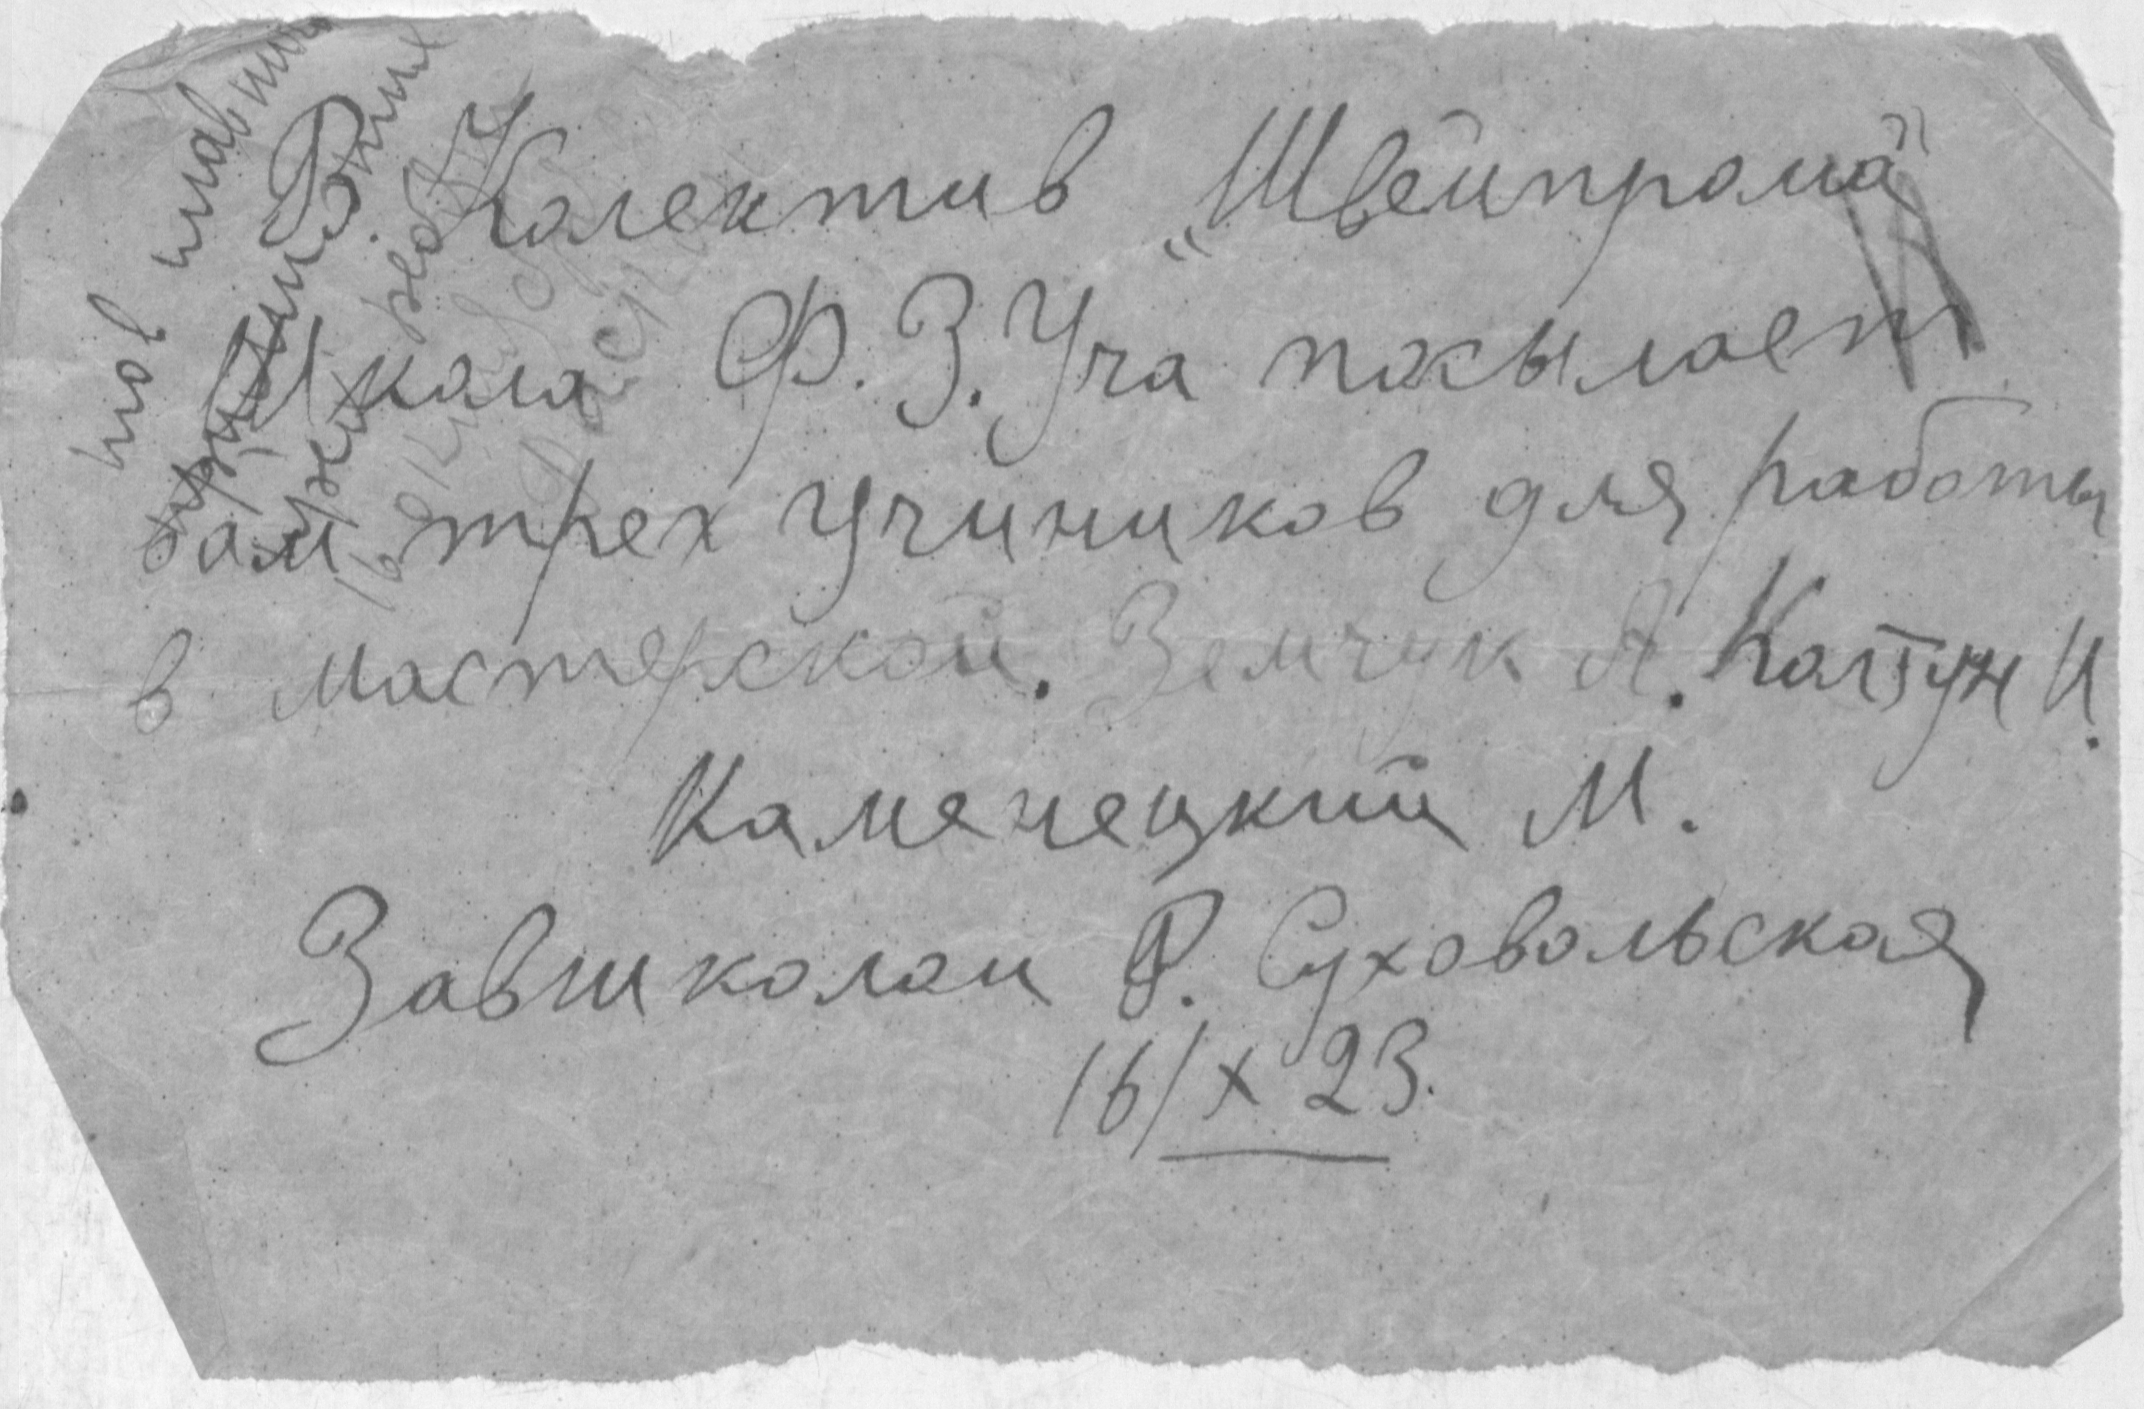 тов
В. Колектив „Швейпрома"
Школа Ф.З.Уча посылает
вам трех учиников для работы
в мастерской. Земчук А. Колтун И.
Каменецкий М.
Завшколой Р. Суховольская
16/X 23.